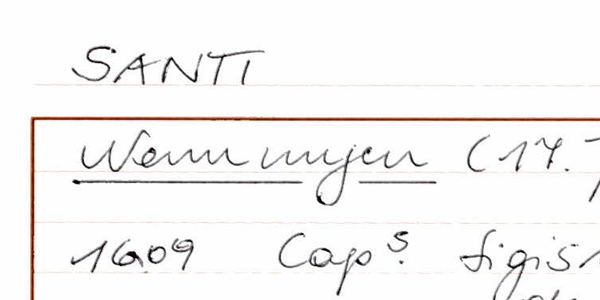 SANTI
Wenn ingen (17.
1609 Cap s. Sigis